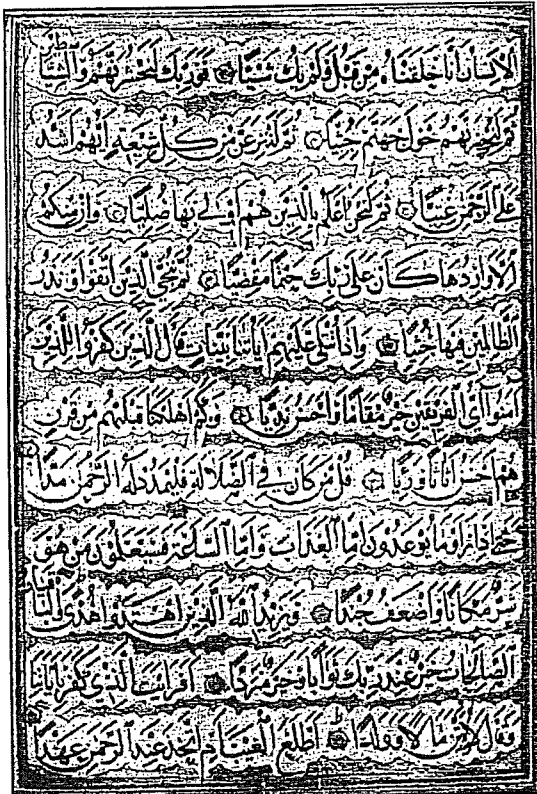 الانسان انا خلقناه من قبل ولم يك شيئا فوربك لنحشرنهم والشياطين
ثم لنحضرنهم حول جهنم جثيا ثم لننزعن من كل شيعة ايهم اشد
على الرحمن عتيا ثم لنحن اعلم بالذين هم اولى بها صليا وان منكم
الا واردها كان على ربك حتما مقضيا ثم ننجى الذين اتقوا ونذر
الظالمين فيها جثيا واذا تتلى عليهم اياتنا بينات قال الذين كفروا للذين
امنوا اى الفريقين خير مقاما واحسن نديا وكم اهلكنا قبلهم من قرن
هم احسن اثاثا وريا قل من كان فى الضلالة فليمدد له الرحمن مدا
حتى اذا راوا ما يوعدون اما العذاب واما الساعة فسيعلمون من هو
شر مكانا واضعف جندا ويزيد الله الذين اهتدوا هدى والباقيات
الصالحات خير عند ربك ثوابا وخير مردا افرايت الذى كفر باياتنا
وقال لاوتين مالا وولدا اطلع الغيب ام اتخذ عند الرحمن عهدا